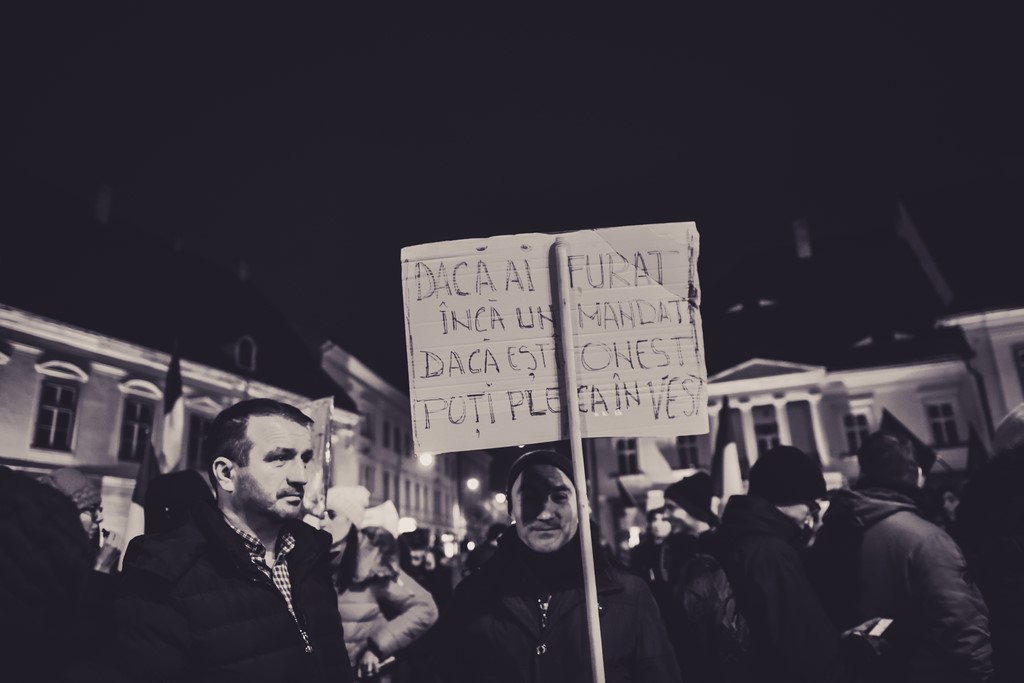 DACĂ AI FURAT
ÎNCĂ UN MANDAT
DACĂ EȘTI ONEST
POȚI PLECA ÎN VEST